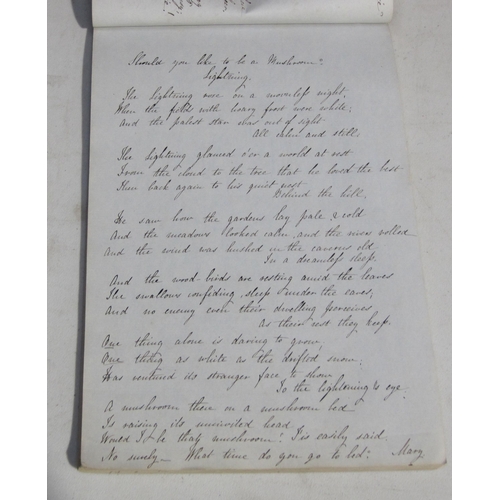 Should you like to be a Mushroom?
Lightning.
The Lightning rose on a moonless night,
When the fields with hoary frost were white;
And the palest star was out of sight
All calm and still.
The lightning glanced o'er a world at rest
From the cloud to the tree that he loved the best
Then back again to his quiet nest
Behind the hill.
He saw how the gardens lay pale & cold
And the meadows looked calm and the river rolled
And the wind was hushed in the caverns old
In a dreamless sleep.
And the wood birds are resting amid the leaves
The swallows confiding, sleep under the eaves,
And no enemy even their dwelling perceives
As their rest they keep.
One thing alone is daring to grow,
One thing as white as the drifted snow;
Has ventured its stranger face to show
To the lightening's eye.
A mushroom there on a mushroom bed
Is raising its uninvited head
Would I be that mushroom? 'Tis easily said
No surely — What time do you go to bed? Mary